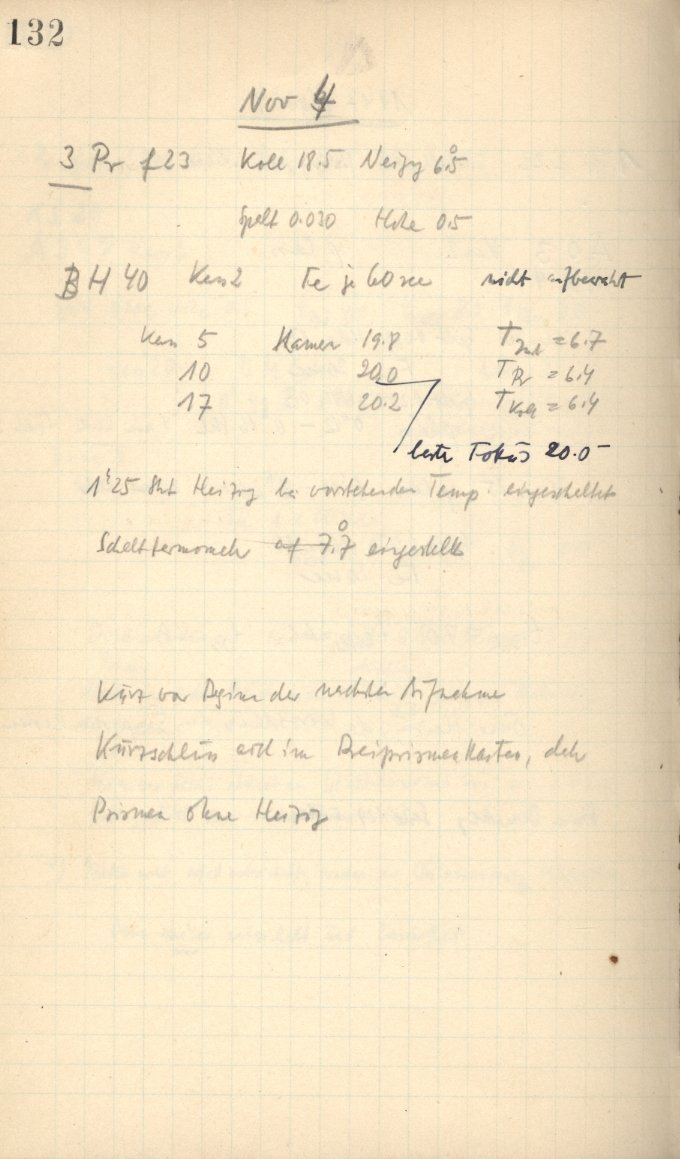 132
Nov 4
3 Pr f23 Koll 18.5 Neigg 6.5°
Spalt 0.030 Höhe 0.5
BH 40 Kass 2 Fe je 60 sec nicht aufbewahrt
Kass 5 Kamera 19.8 T = 6.7
10 20.0 T Pr = 6.4
17 20.2 T Koll = 6.4
bester Fokus 20.0
Heizg bei vorstehenden Temp. eingeschaltet
Schaltthermometer auf 7.7° eingestellt
Kurz vor Beginn der nächsten Aufnahme
Kurzschluss im Dreiprismenkasten, daher
Prismen ohne Heizg